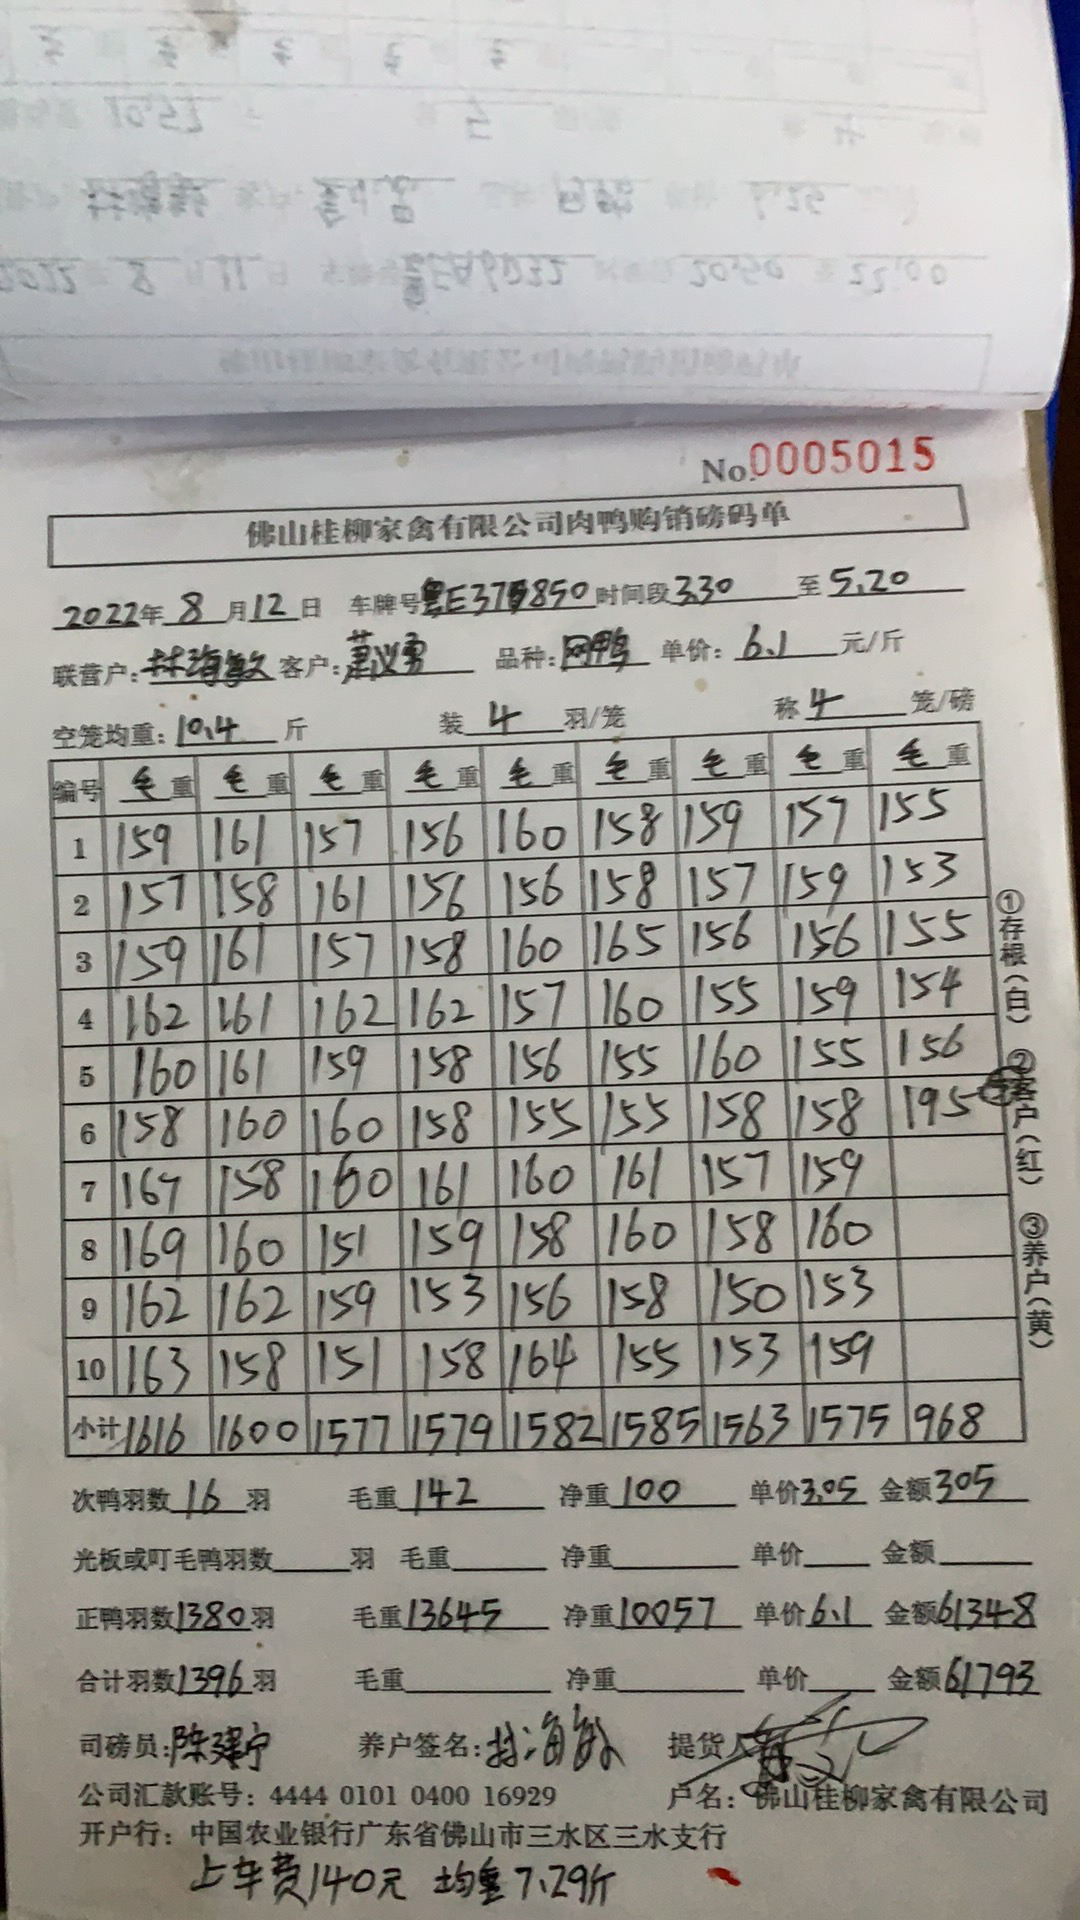 No.0005015
佛山桂柳家禽有限公司肉鸭购销磅码单
2022年 8 月 12 日 车牌号 粤E37850 时间段 3.30 至 5.20
联营户: 林海敏 客户: 萧义勇 品种: 网鸭 单价: 6.1 元/斤
空笼均重: 10.4 斤 装 4 羽/笼 称 4 笼/磅
编号 毛重 毛重 毛重 毛重 毛重 毛重 毛重 毛重 毛重
1 159 161 157 156 160 158 159 157 155
2 157 158 161 156 156 158 157 159 153
3 159 161 157 158 160 165 156 156 155
4 162 161 162 162 157 160 155 159 154
5 160 161 159 158 156 155 160 155 156
6 158 160 160 158 155 155 158 158 195
7 167 158 160 161 160 161 157 159
8 169 160 151 159 158 160 158 160
9 162 162 159 153 156 158 150 153
10 163 158 151 158 164 155 153 159
小计 1616 1600 1577 1579 1582 1585 1563 1575 968
①存根(白) ②客户(红) ③养户(黄)
次鸭羽数 16 羽 毛重 142 净重 100 单价 3.05 金额 305
光板或叮毛鸭羽数 羽 毛重 净重 单价 金额
正鸭羽数 1380 羽 毛重 13645 净重 10057 单价 6.1 金额 61348
合计羽数 1396 羽 毛重 净重 单价 金额 61793
司磅员: 陈建宁 养户签名: 林海敏 提货人
公司汇款账号: 4444 0101 0400 16929 户名: 佛山桂柳家禽有限公司
开户行: 中国农业银行广东省佛山市三水区三水支行
上车费140元 均重7.29斤